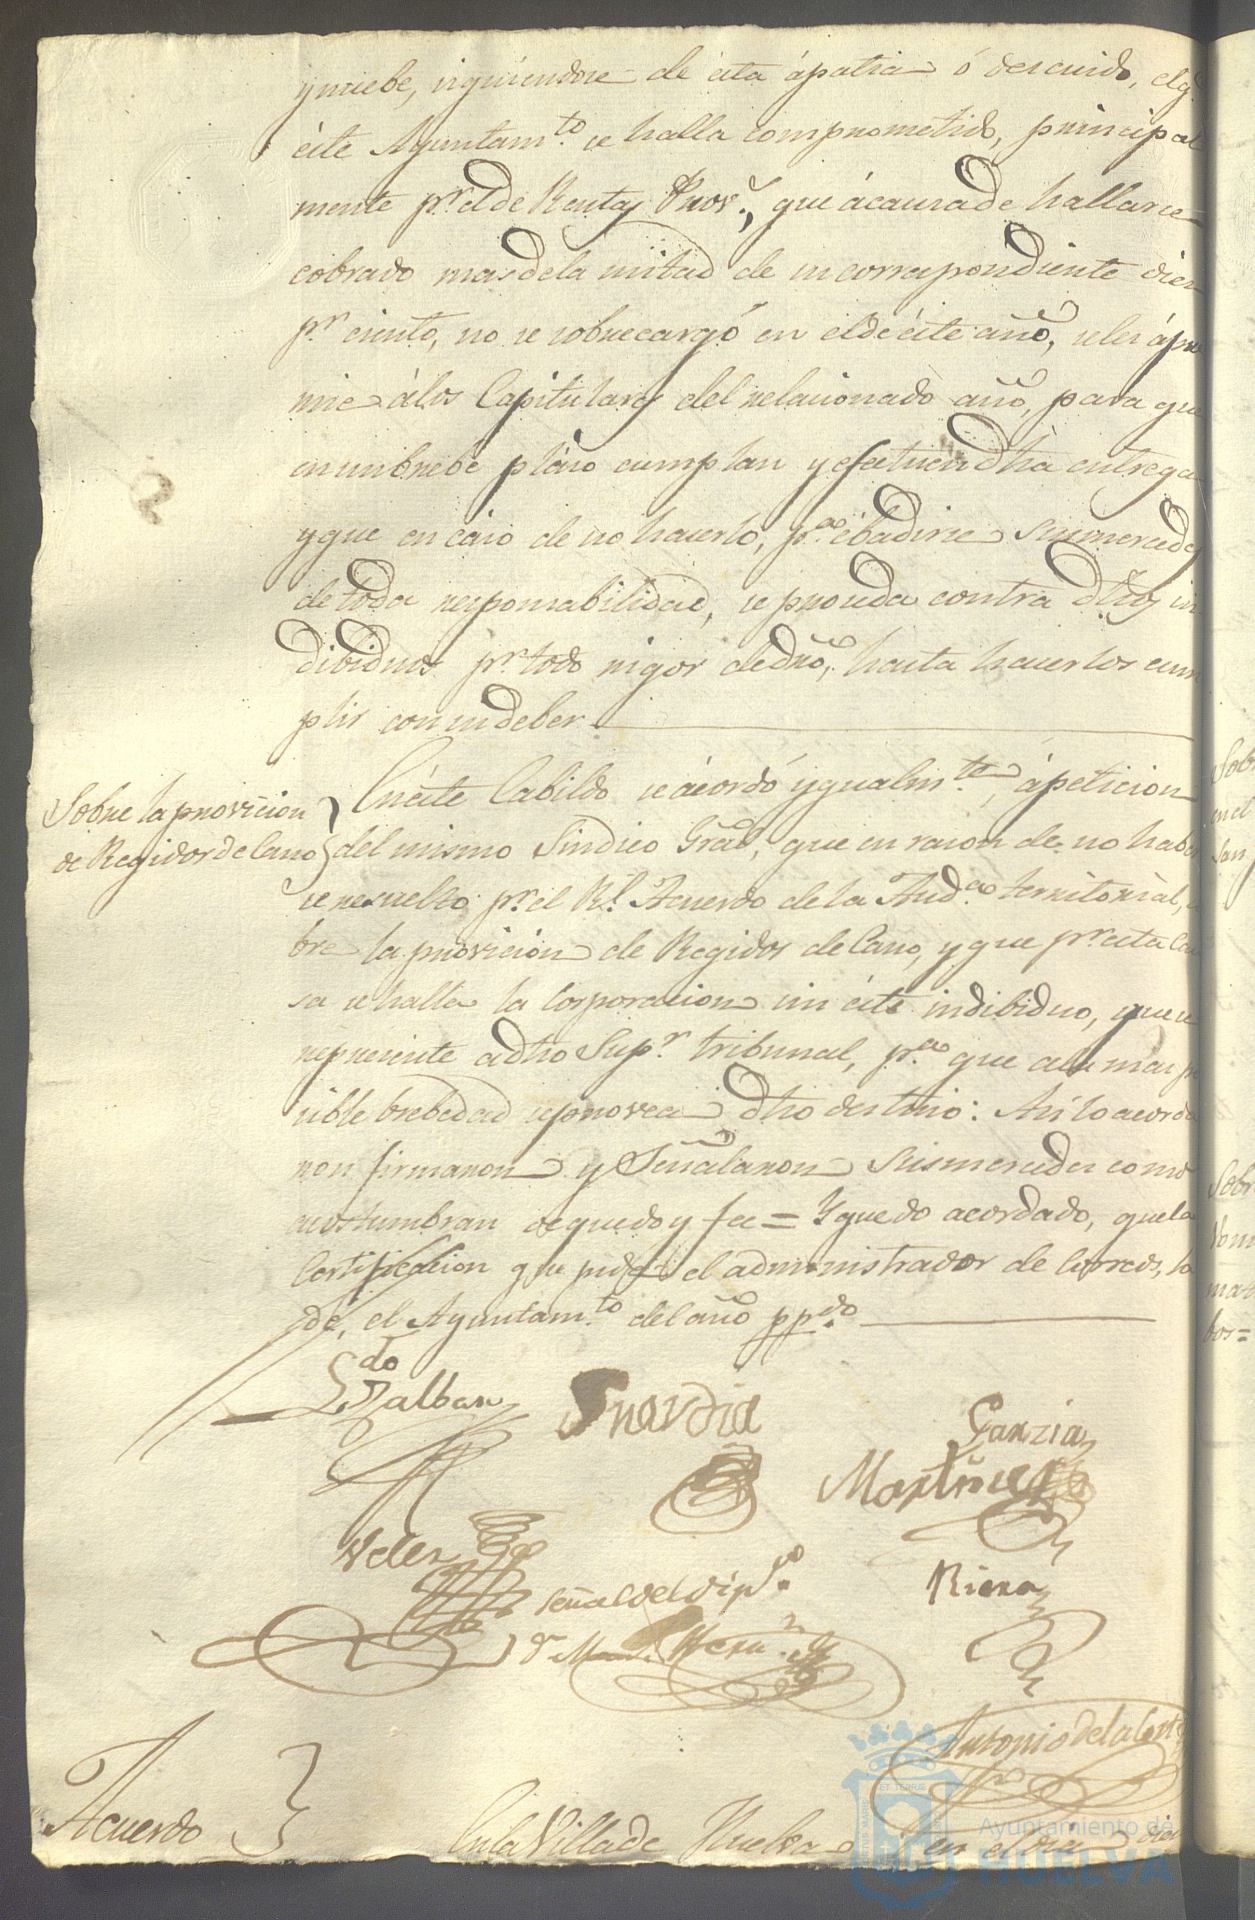 ynuebe, siguiendose de ésta ápatia ó descuido, elq.e
éste Ayuntam.to se halla comprometido, principal
mente p.r el de Rentas Prov.s, que ácausa de hallarse
cobrado mas dela mitad de su correspondiente diez
p.r ciento, no se sobrecargó en el de éste año, seles ápre
mie álos Capitulares del relacionado año, para que
en un brebe plazo cumplan y efectuen dha entrega
y que en caso de no hacerlo, p.a ébadirse Susmercedes
de toda responsabilidad, se proceda contra dhos in
dibiduos p.r todo rigor de dro, hasta hacerlos cum
plir con su deber
Sobre la provicion
de Regidor de Cano
En éste Cabildo se ácordó ygualm.te, ápeticion
del mismo Sindico Gral, que en razon de no haber
se resuelto p.r el R.l Acuerdo de la Aud.a territorial, so
bre la provicion de Regidor de Cano, y que p.r esta Cau
sa se halla la Corporacion sin éste indibiduo, que se
represente adho Sup.r tribunal, p.a que ala mas po
sible brebedad se provea dho destino: Así lo acorda
ron firmaron y Señalaron Susmercedes como
acostumbran de que doy fee = Y quedo acordado, que la
Certificacion que pide el administrador de Correos, la
dé, el Ayuntam.to del año pp.do
L.do Zalban
Garzia
Martinez
Velez
Señal del Dip.do
Riera
Antonio de la Corte
Acuerdo
En la Villa de Huelva en el dia
Ayuntamiento de
HUELVA